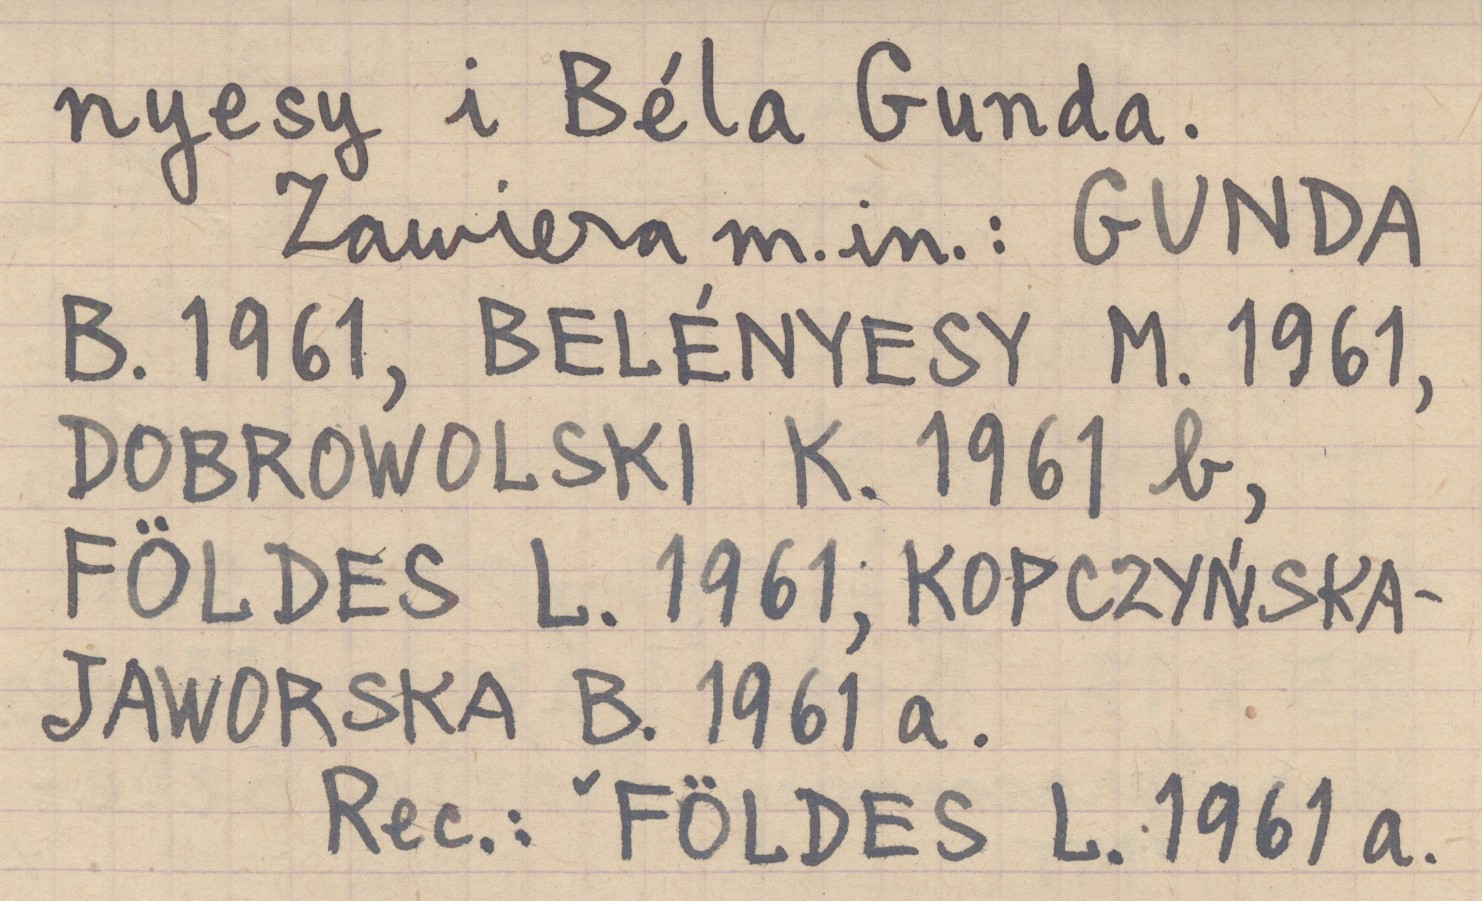 nyesy i Béla Gunda.
Zawiera m.in.: GUNDA
B. 1961, BELÉNYESY M. 1961,
DOBROWOLSKI K. 1961 b,
FÖLDES L. 1961, KOPCZYŃSKA-
JAWORSKA B. 1961 a.
Rec.: ˇFÖLDES L. 1961 a.